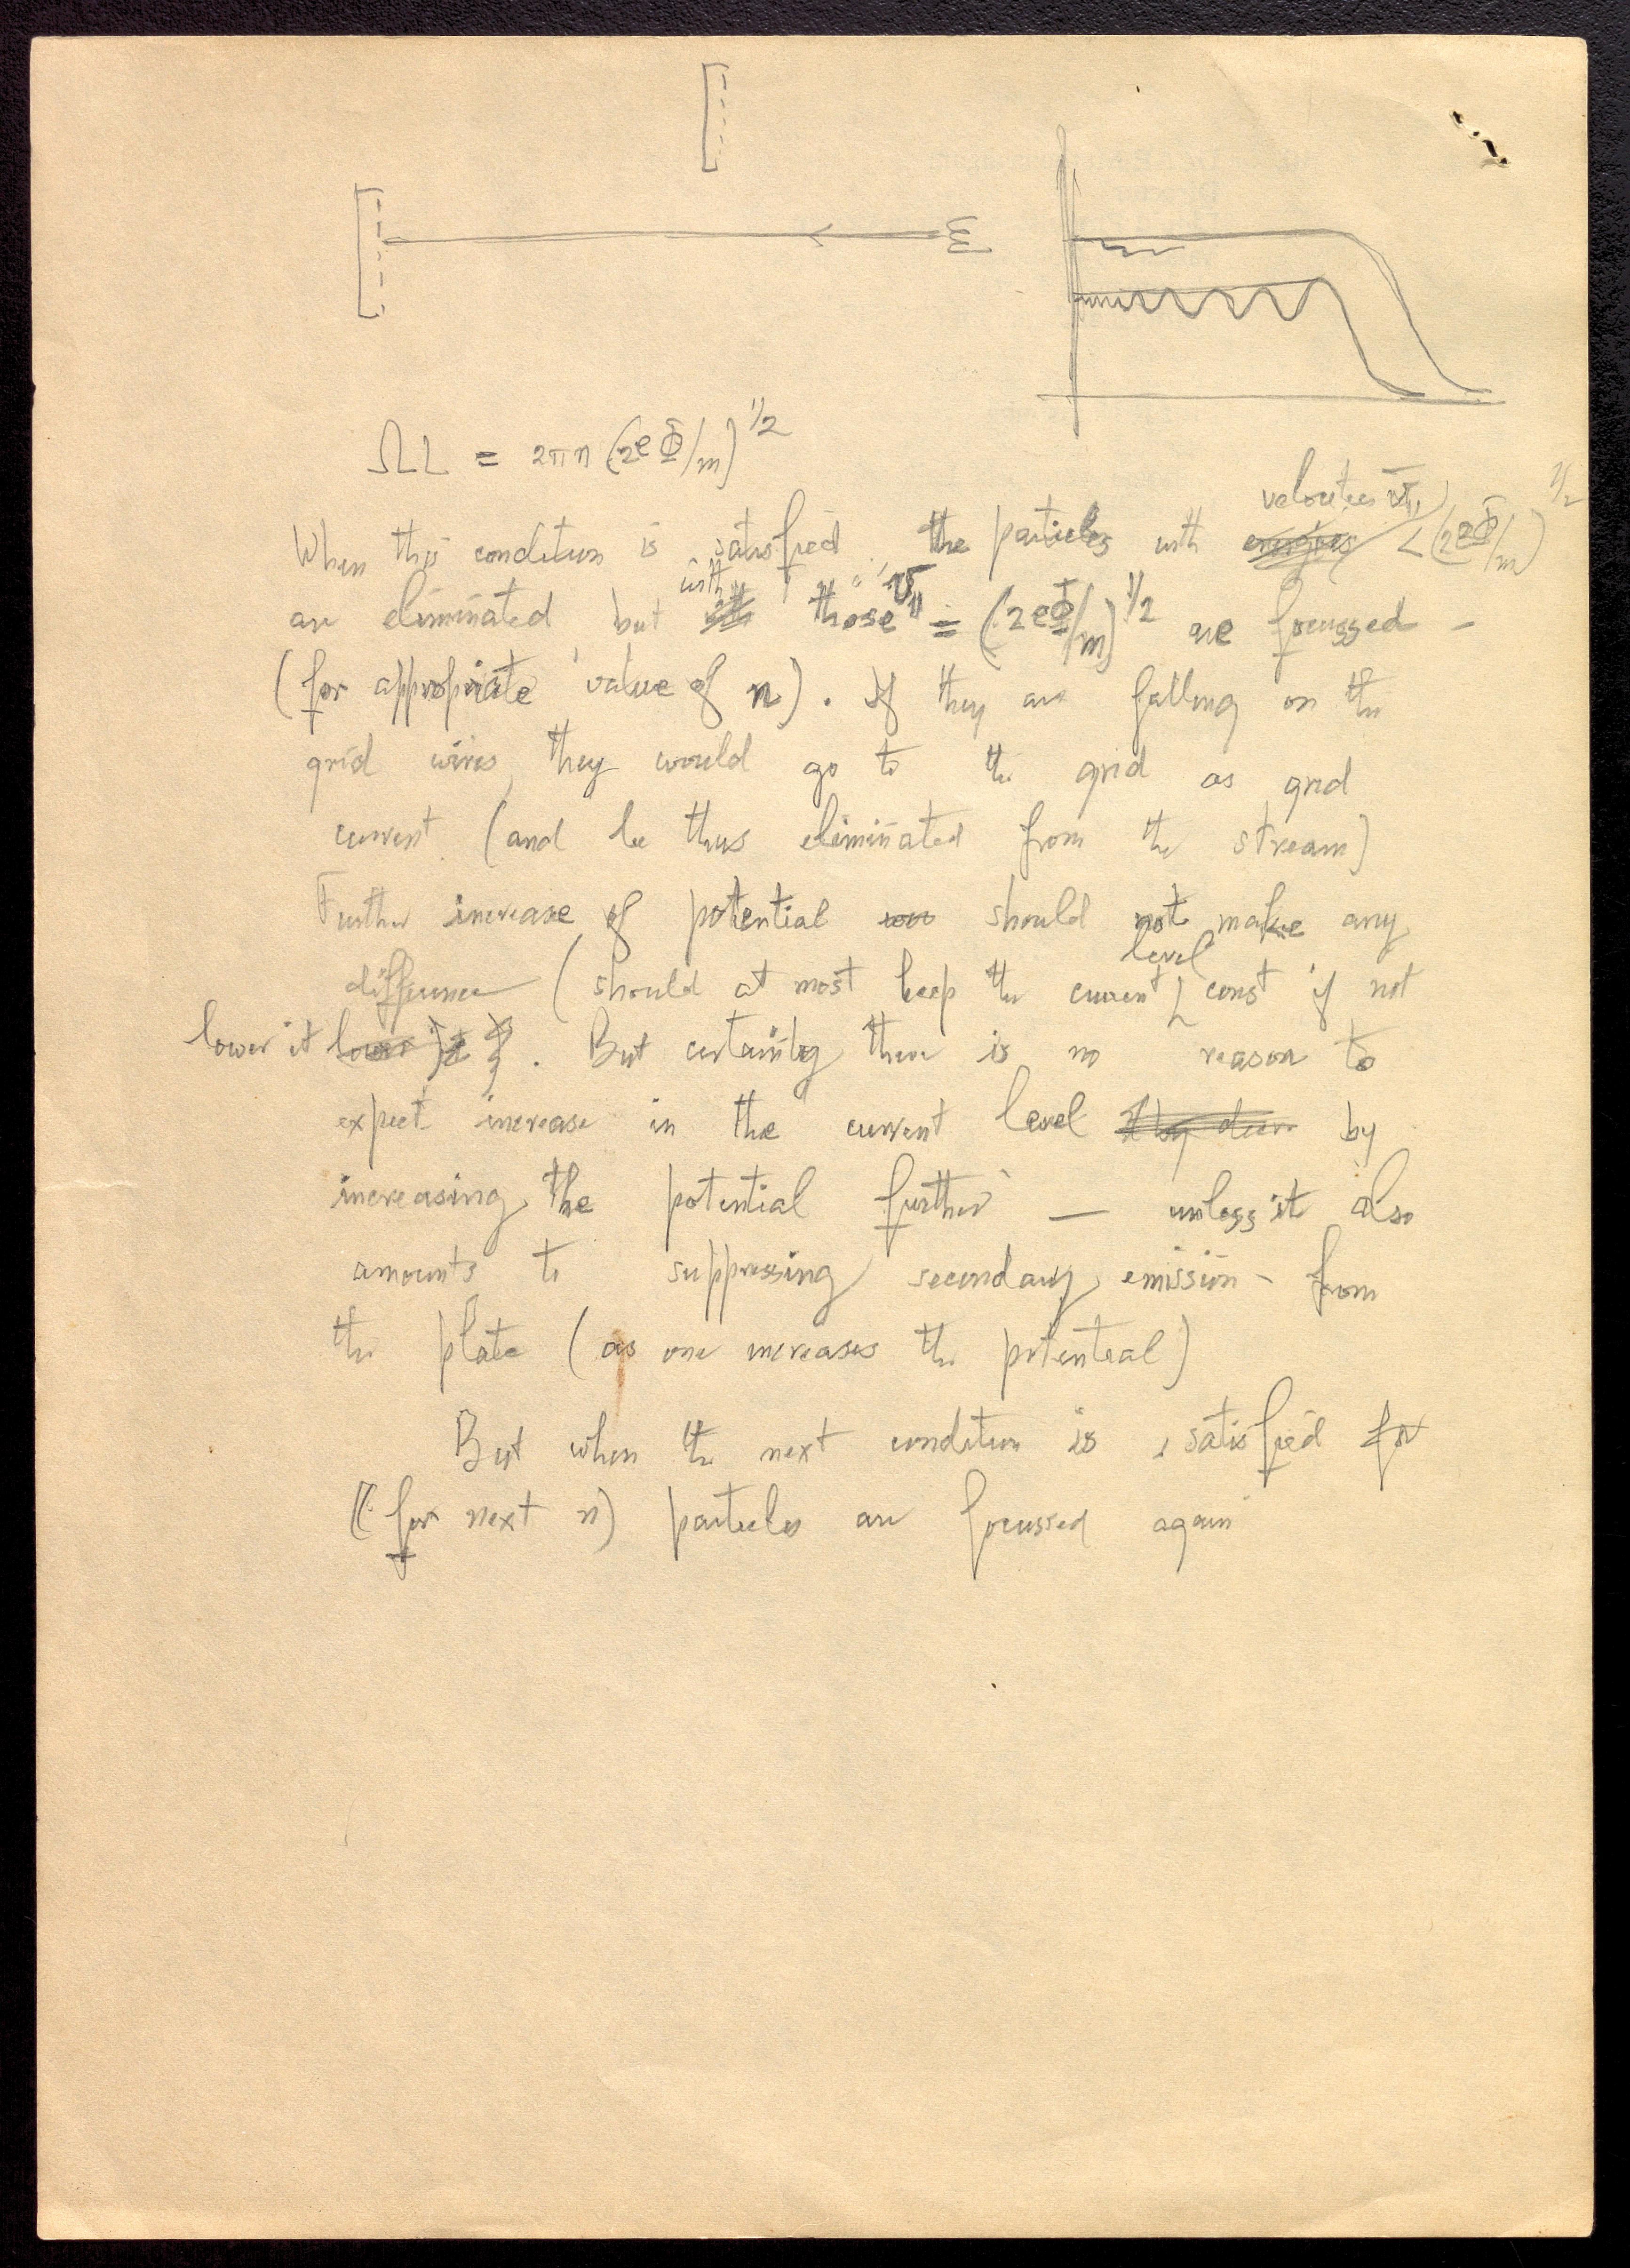 ΩL = 2πn (2eΦ/m)^1/2
When this condition is satisfied, the particles with velocities v_∥ < (2eΦ/m)^1/2
are eliminated but with those v_∥ = (2eΦ/m)^1/2 are focussed –
(for appropriate value of n). If they are falling on the
grid wires, they would go to the grid as grid
current. (and be thus eliminated from the stream)
Further increase of potential should not make any
difference (should at most keep the current level const if not
lower it). But certainly there is no reason to
expect increase in the current level by
increasing the potential further — unless it also
amounts to suppressing secondary emission – from
the plate (as one increases the potential)
But when the next condition is satisfied for
(for next n) particles are focussed again